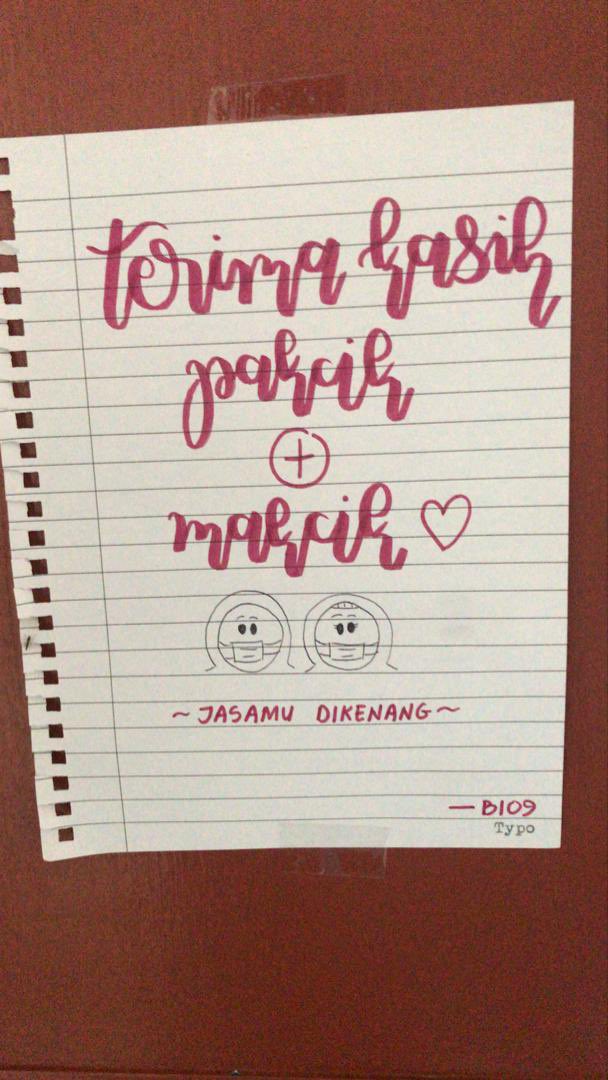 terima kasih
pakcik
+
makcik ♡
~ JASAMU DIKENANG ~
— B109
Typo